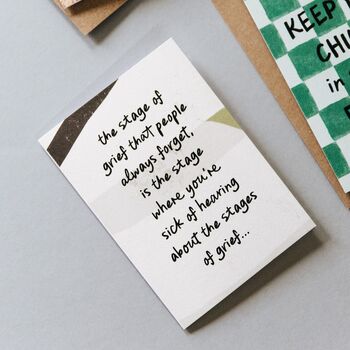 the stage of
grief that people
always forget,
is the stage
where you're
sick of hearing
about the stages
of grief...
KEEP
CHI
in